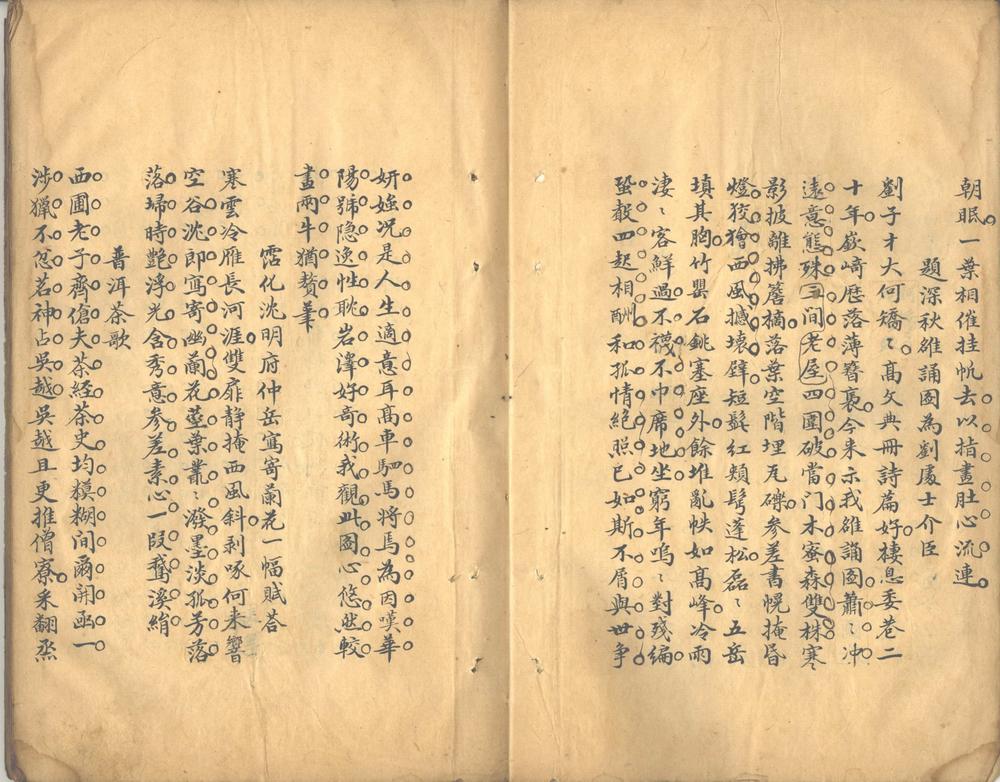 朝眠一葉相催挂帆去以指畫肚心流連
題深秋雒誦圖為劉處士介臣
劉子才大何矯〻高文典冊詩篇好棲息委巷二
十年嶔崎歷落薄簪裹今来示我雒誦图蕭〻冲
遠意態殊三间老屋四圍破當门木蜜森雙株寒
影披離拂簷樀落葉空階埋瓦礫参差書幌掩昏
燈狡獪西風撼壊壁短鬂红頬髩蓬松磊〻五岳
填其胸竹罌石銚塞座外餘堆亂帙如高峰冷雨
淒〻客鮮過不襪不巾席地坐窮年嗚〻對殘編
蛩㲉四起相酬和孤情絕照已如斯不屑與世争
妍媸况是人生適意耳高車駟馬将焉為因嘆華
陽號隐逸性耽岩澤好奇術我觀此圖心悠然較
畫兩牛猶贅筆
霑化沈明府仲岳寫寄蘭花一幅賦荅
寒雲冷雁長河涯雙扉静掩西風斜剥啄何来響
空谷沈郎寫寄幽蘭花莖葉叢〻潑墨淡孤芳落
落埽時艶浮光含秀意参差素心一段鵞溪綃
普洱茶歌
西圃老子齊傖夫茶經茶史均糢糊间爾開函一
涉獵不忘茗神占吳越吳越且更推僧寮采翻烝